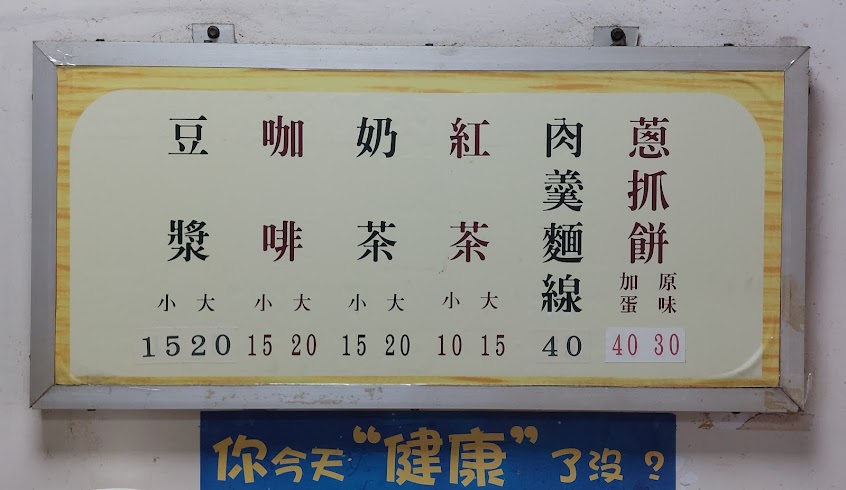 蔥抓餅
原味
加蛋
30
40
肉羹麵線
40
紅茶
大
小
15
10
奶茶
大
小
20
15
咖啡
大
小
20
15
豆漿
大
小
20
15
你今天“健康”了沒？